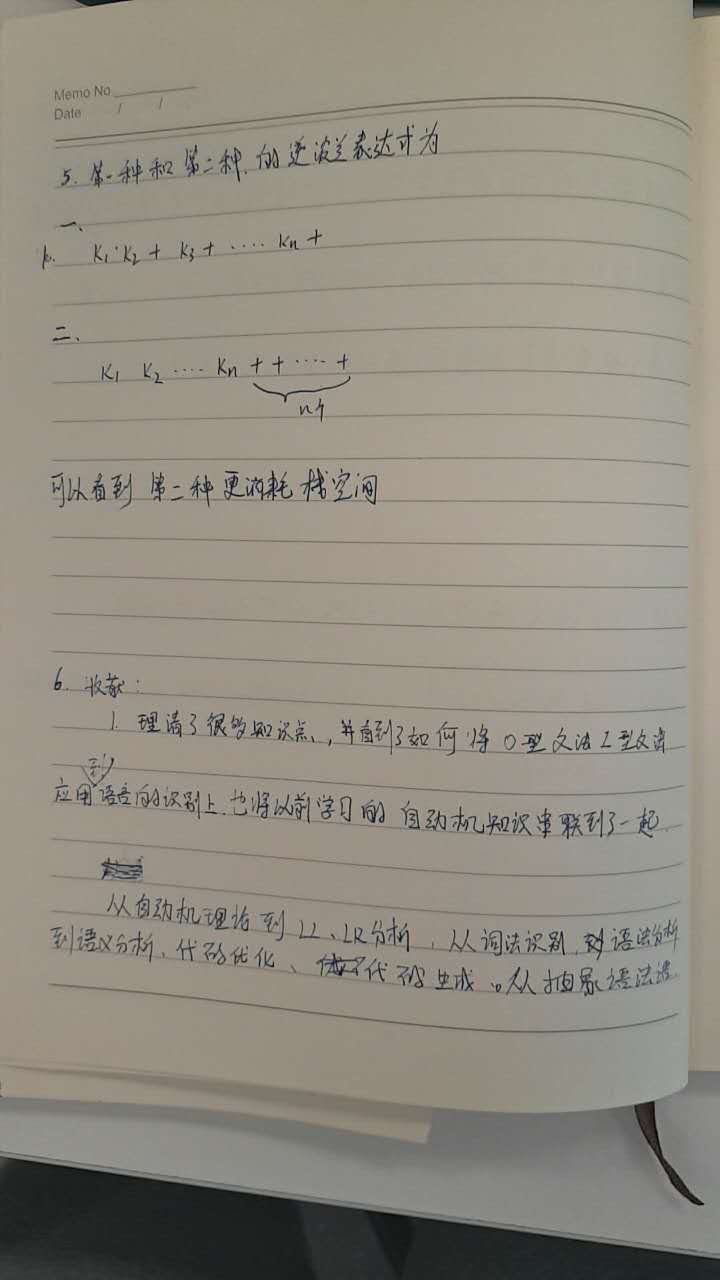 Memo No.
Date / /
5. 第一种和第二种.的逆波兰表达式为
一、
K₁ K₂ + K₃ + ···· Kn +
二、
K₁ K₂ ···· Kn + + ···· +
n个
可以看到 第二种更消耗栈空间
6. 收获:
1. 理清了很多知识点,并看到了如何将 0型文法 2型文法
到
应用语言的识别上.也将以前学习的 自动机知识串联到了一起.
从自动机理论到 LL、LR分析,从词法识别, 语法分析
到语义分析、代码优化、代码生成。从抽象语法